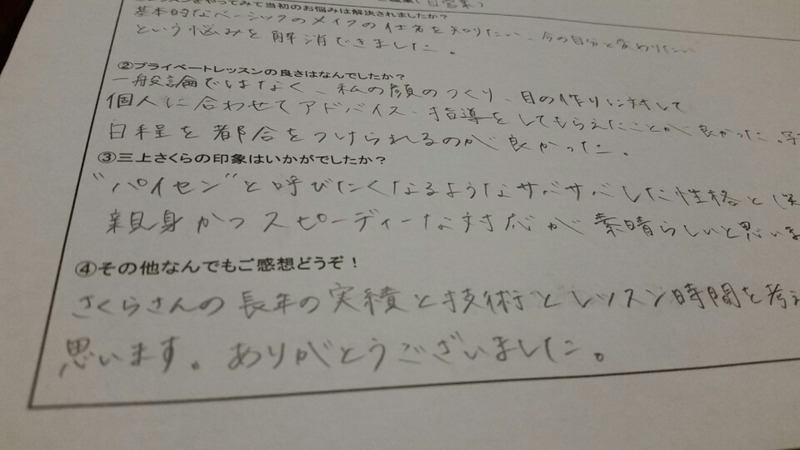 やってみて当初のお悩みは解決されましたか?
基本的なベーシックのメイクの仕方を知りたい、今の自分を変わりたい
という悩みを解消できました。
②プライベートレッスンの良さはなんでしたか?
一般論ではなく、私の顔のつくり、目の作りに対して
個人に合わせてアドバイス、指導をしてもらえたことが良かった。
日程を都合をつけられるのが良かった。
③三上さくらの印象はいかがでしたか?
"パイセン"と呼びたくなるようなサバサバした性格と
親身かつスピーディーな対応が素晴らしいと思いま
④その他なんでもご感想どうぞ!
さくらさんの長年の実績と技術とレッスン時間を考え
思います。ありがとうございました。